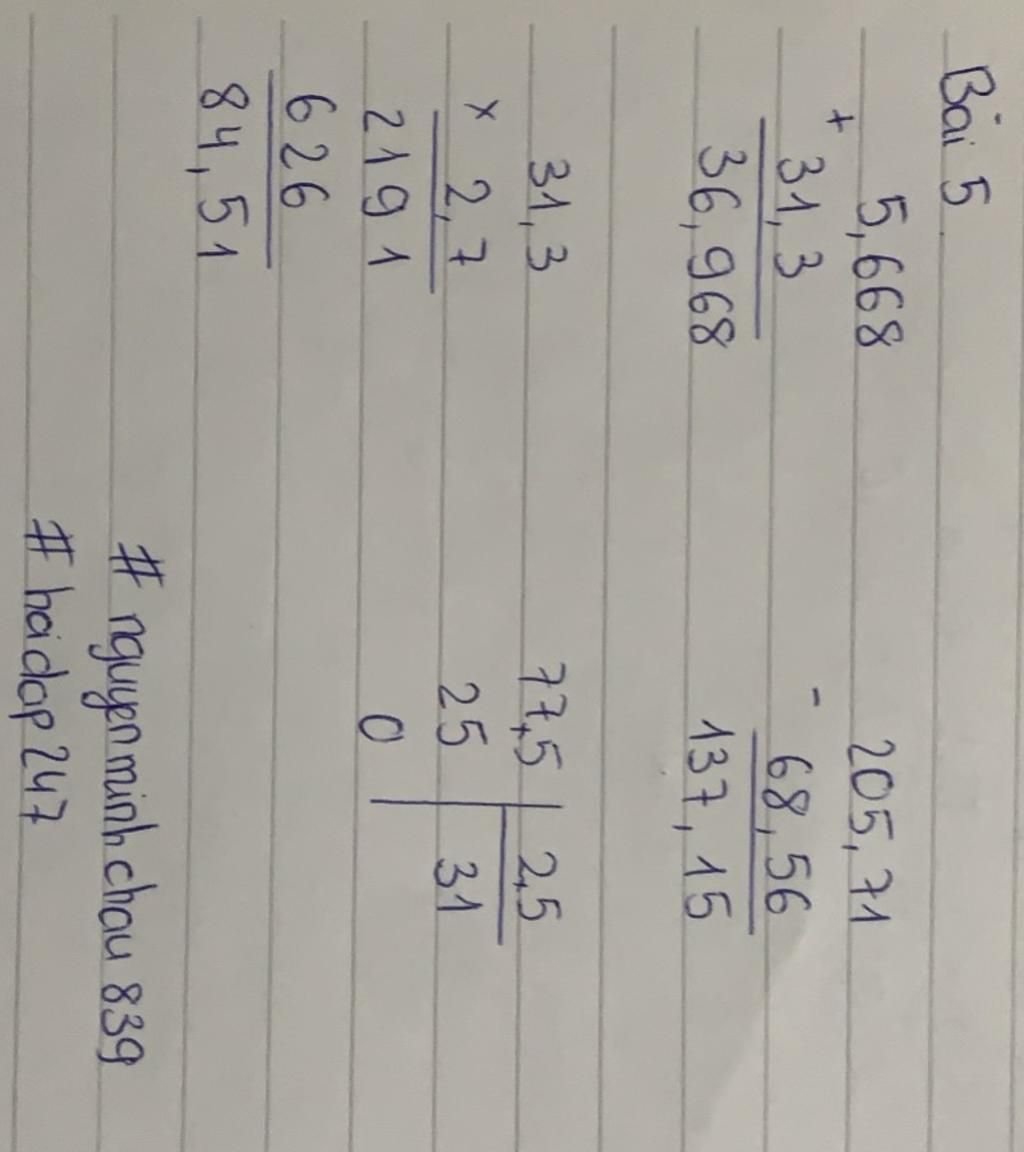 Bài 5
5,668
+
31,3
36,968
205,71
-
68,56
137,15
31,3
×
2,7
2191
626
84,51
77,5 2,5
25 31
0
# nguyenminhchau839
# hoidap247